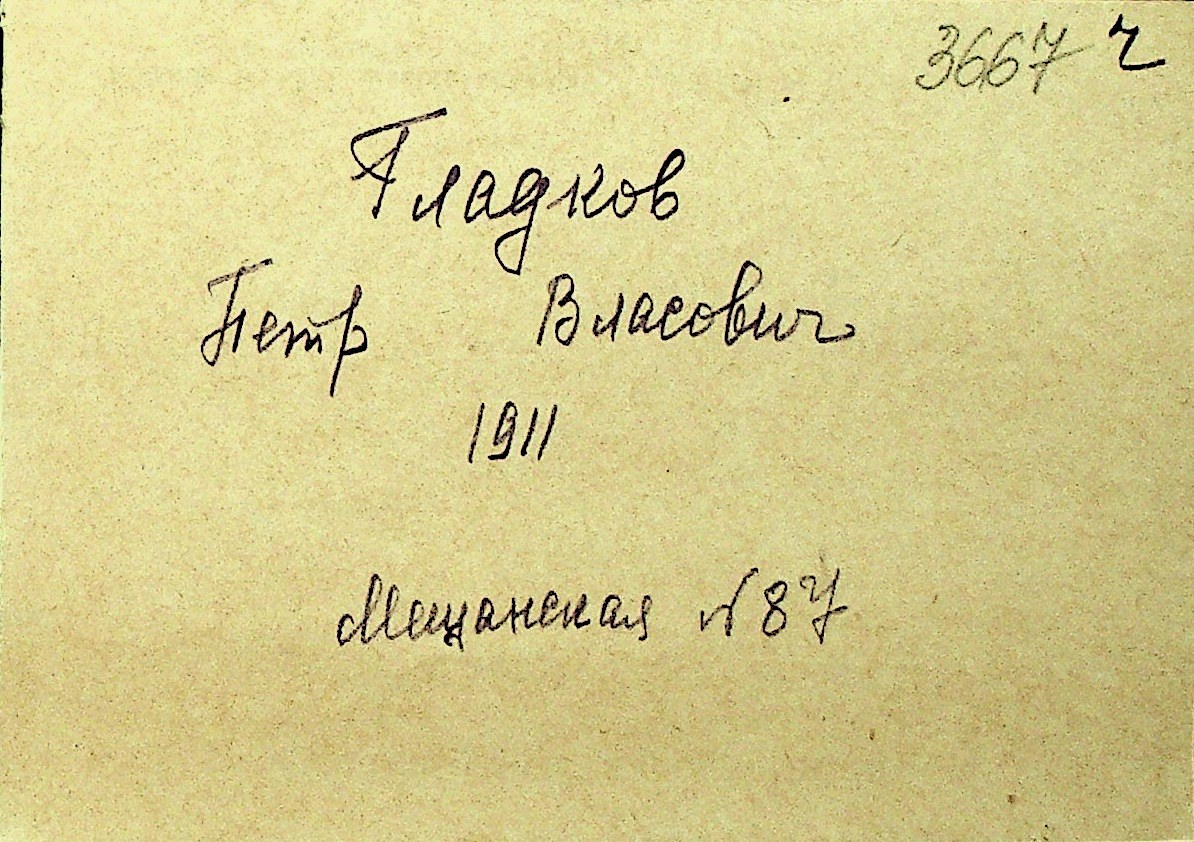 3667 ч
Гладков
Петр Власович
1911
Мещанская № 87